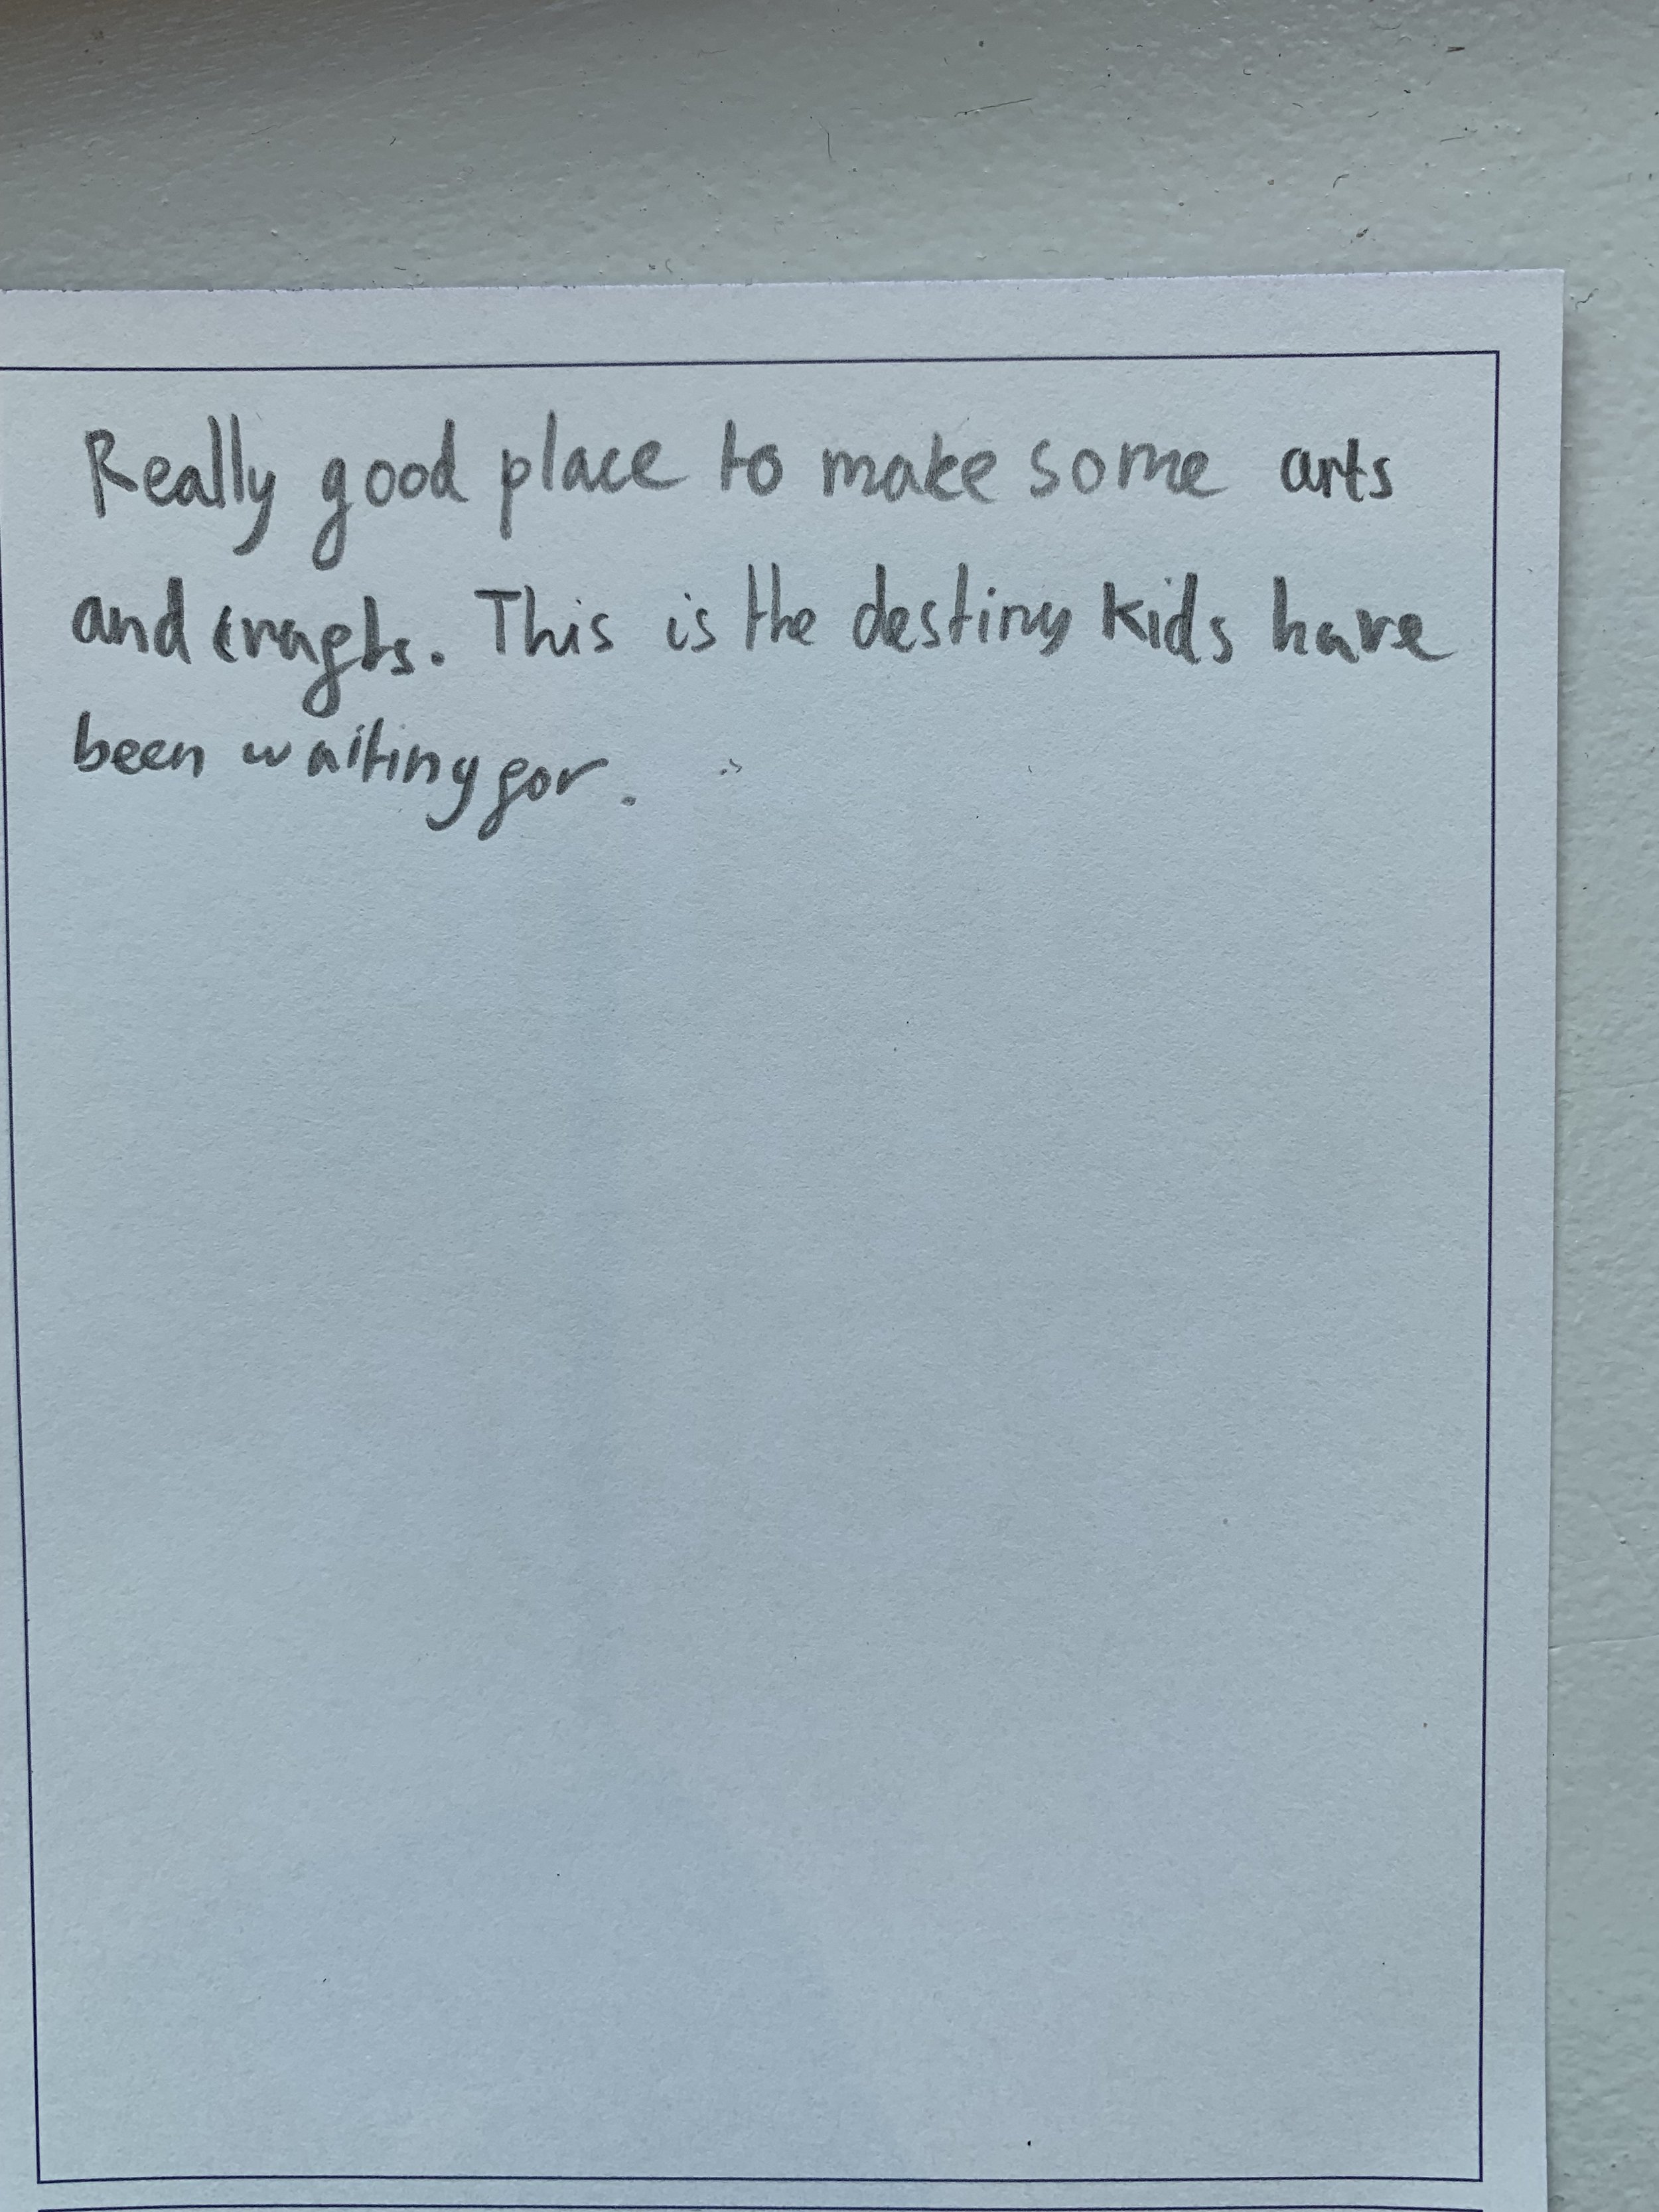 Really good place to make some arts
and crafts. This is the destiny kids have
been waiting for.